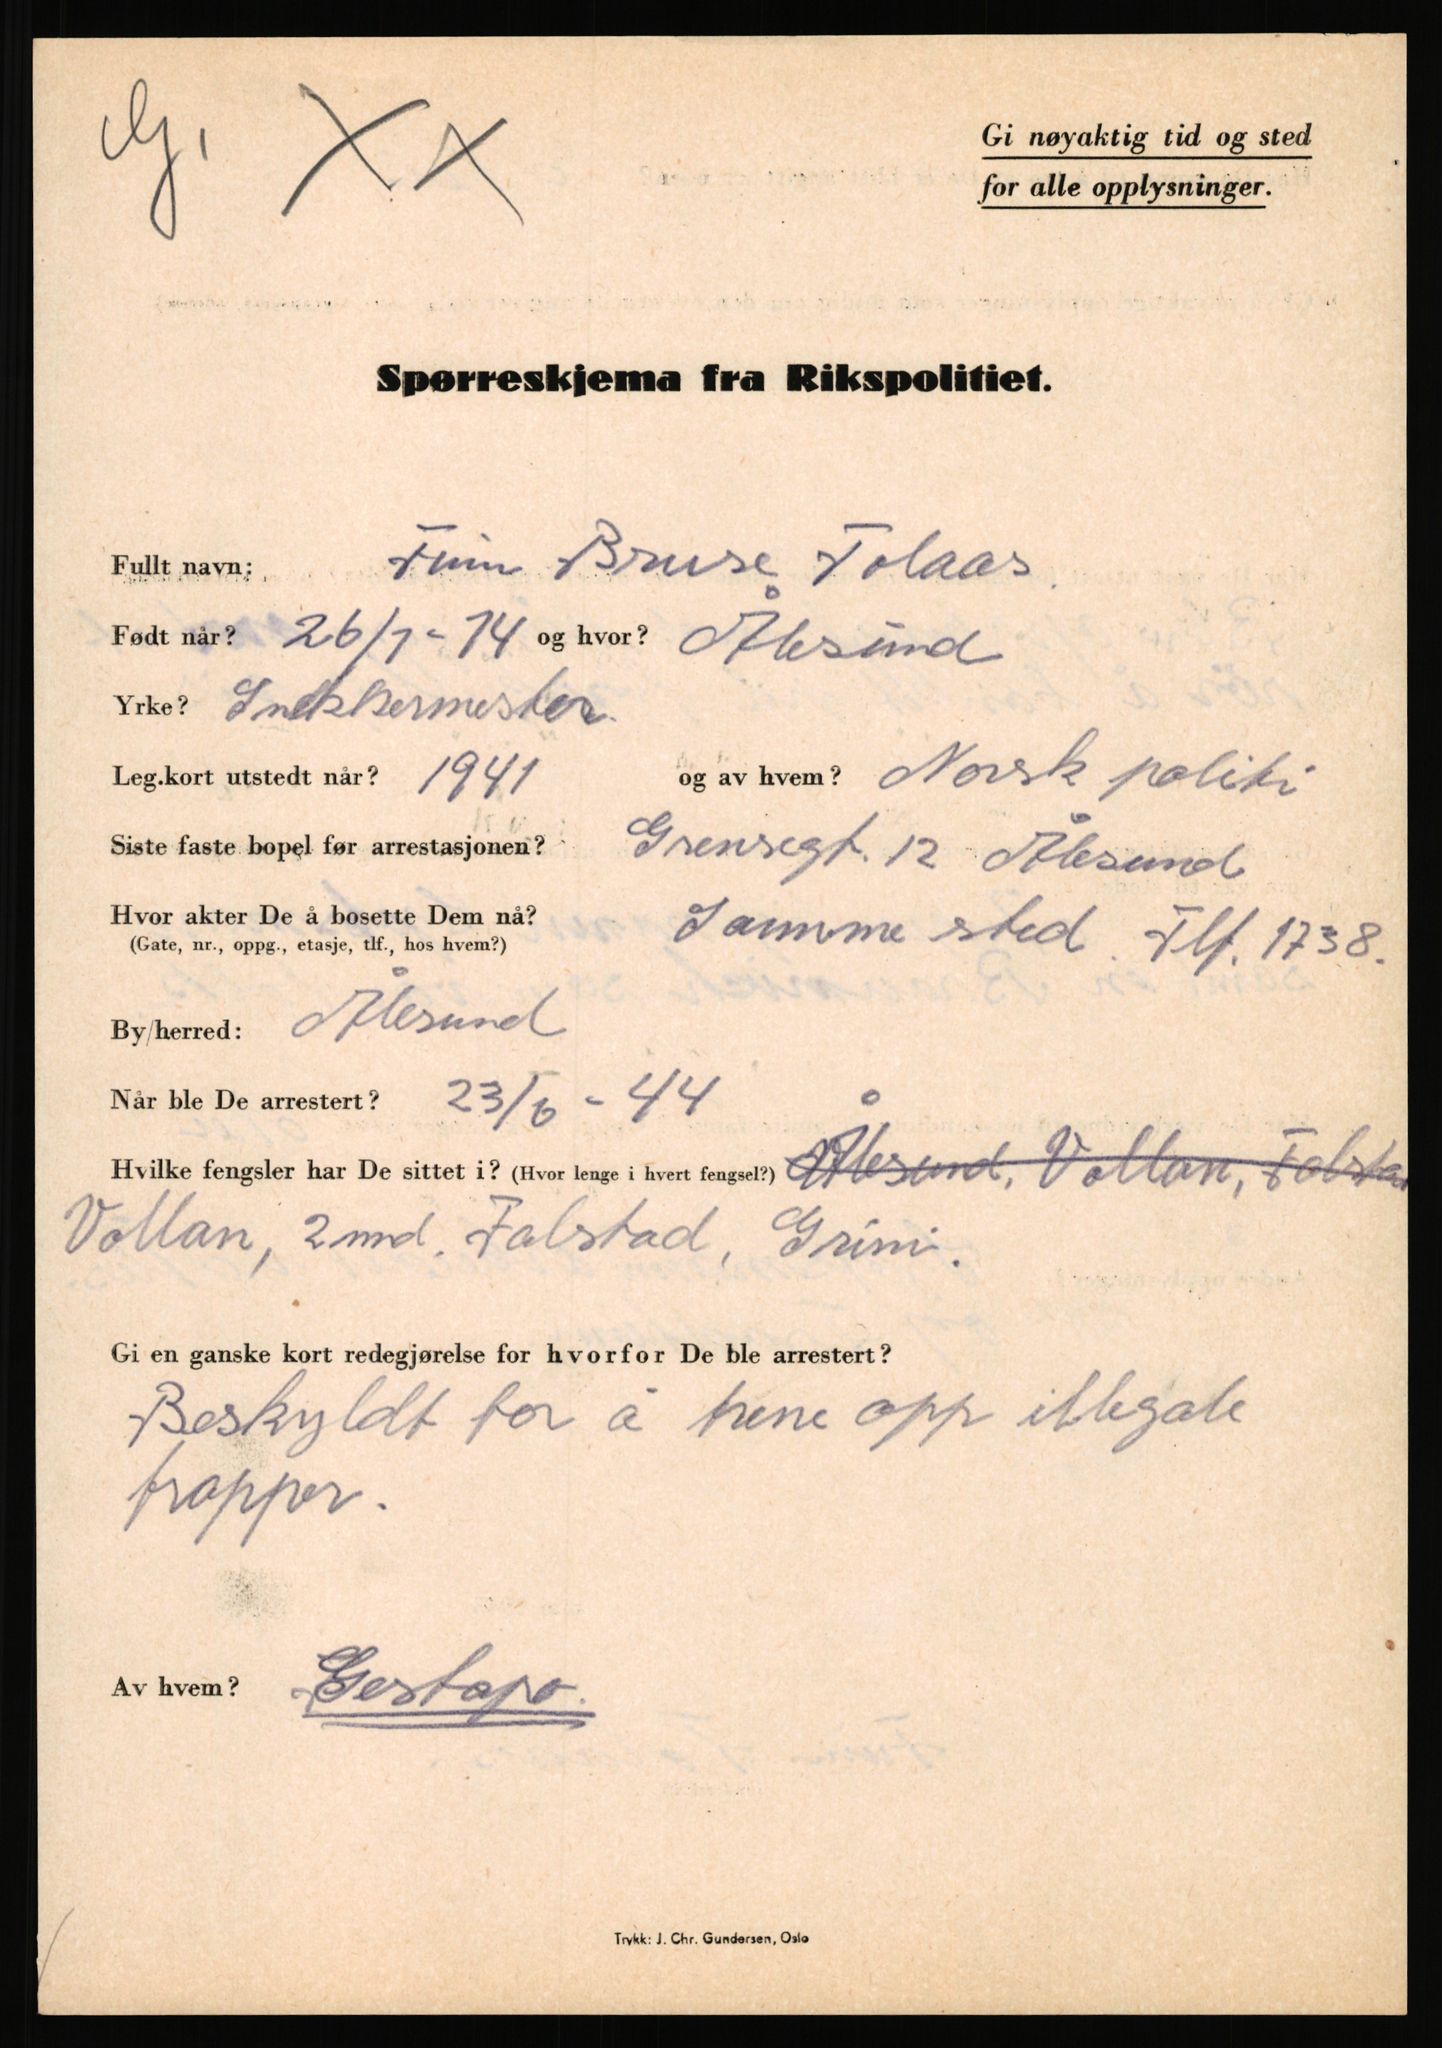 G. XX
Gi nøyaktig tid og sted
for alle opplysninger.
Spørreskjema fra Rikspolitiet.
Fullt navn: Finn Bruse Tolaas.
Født når? 26/7-14 og hvor? Ålesund
Yrke? Snekkermester.
Leg.kort utstedt når? 1941 og av hvem? Norsk politi
Siste faste bopel før arrestasjonen? Grensegt. 12 Ålesund
Hvor akter De å bosette Dem nå? Samme sted. Tlf. 1738.
(Gate, nr., oppg., etasje, tlf., hos hvem?)
By/herred: Ålesund
Når ble De arrestert? 23/6-44
Hvilke fengsler har De sittet i? (Hvor lenge i hvert fengsel?) Ålesund, Vollan, Falstad
Vollan, 2 md. Falstad, Grini.
Gi en ganske kort redegjørelse for hvorfor De ble arrestert?
Beskyldt for å trene opp illegale
tropper.
Av hvem? Gestapo.
Trykk: J. Chr. Gundersen, Oslo